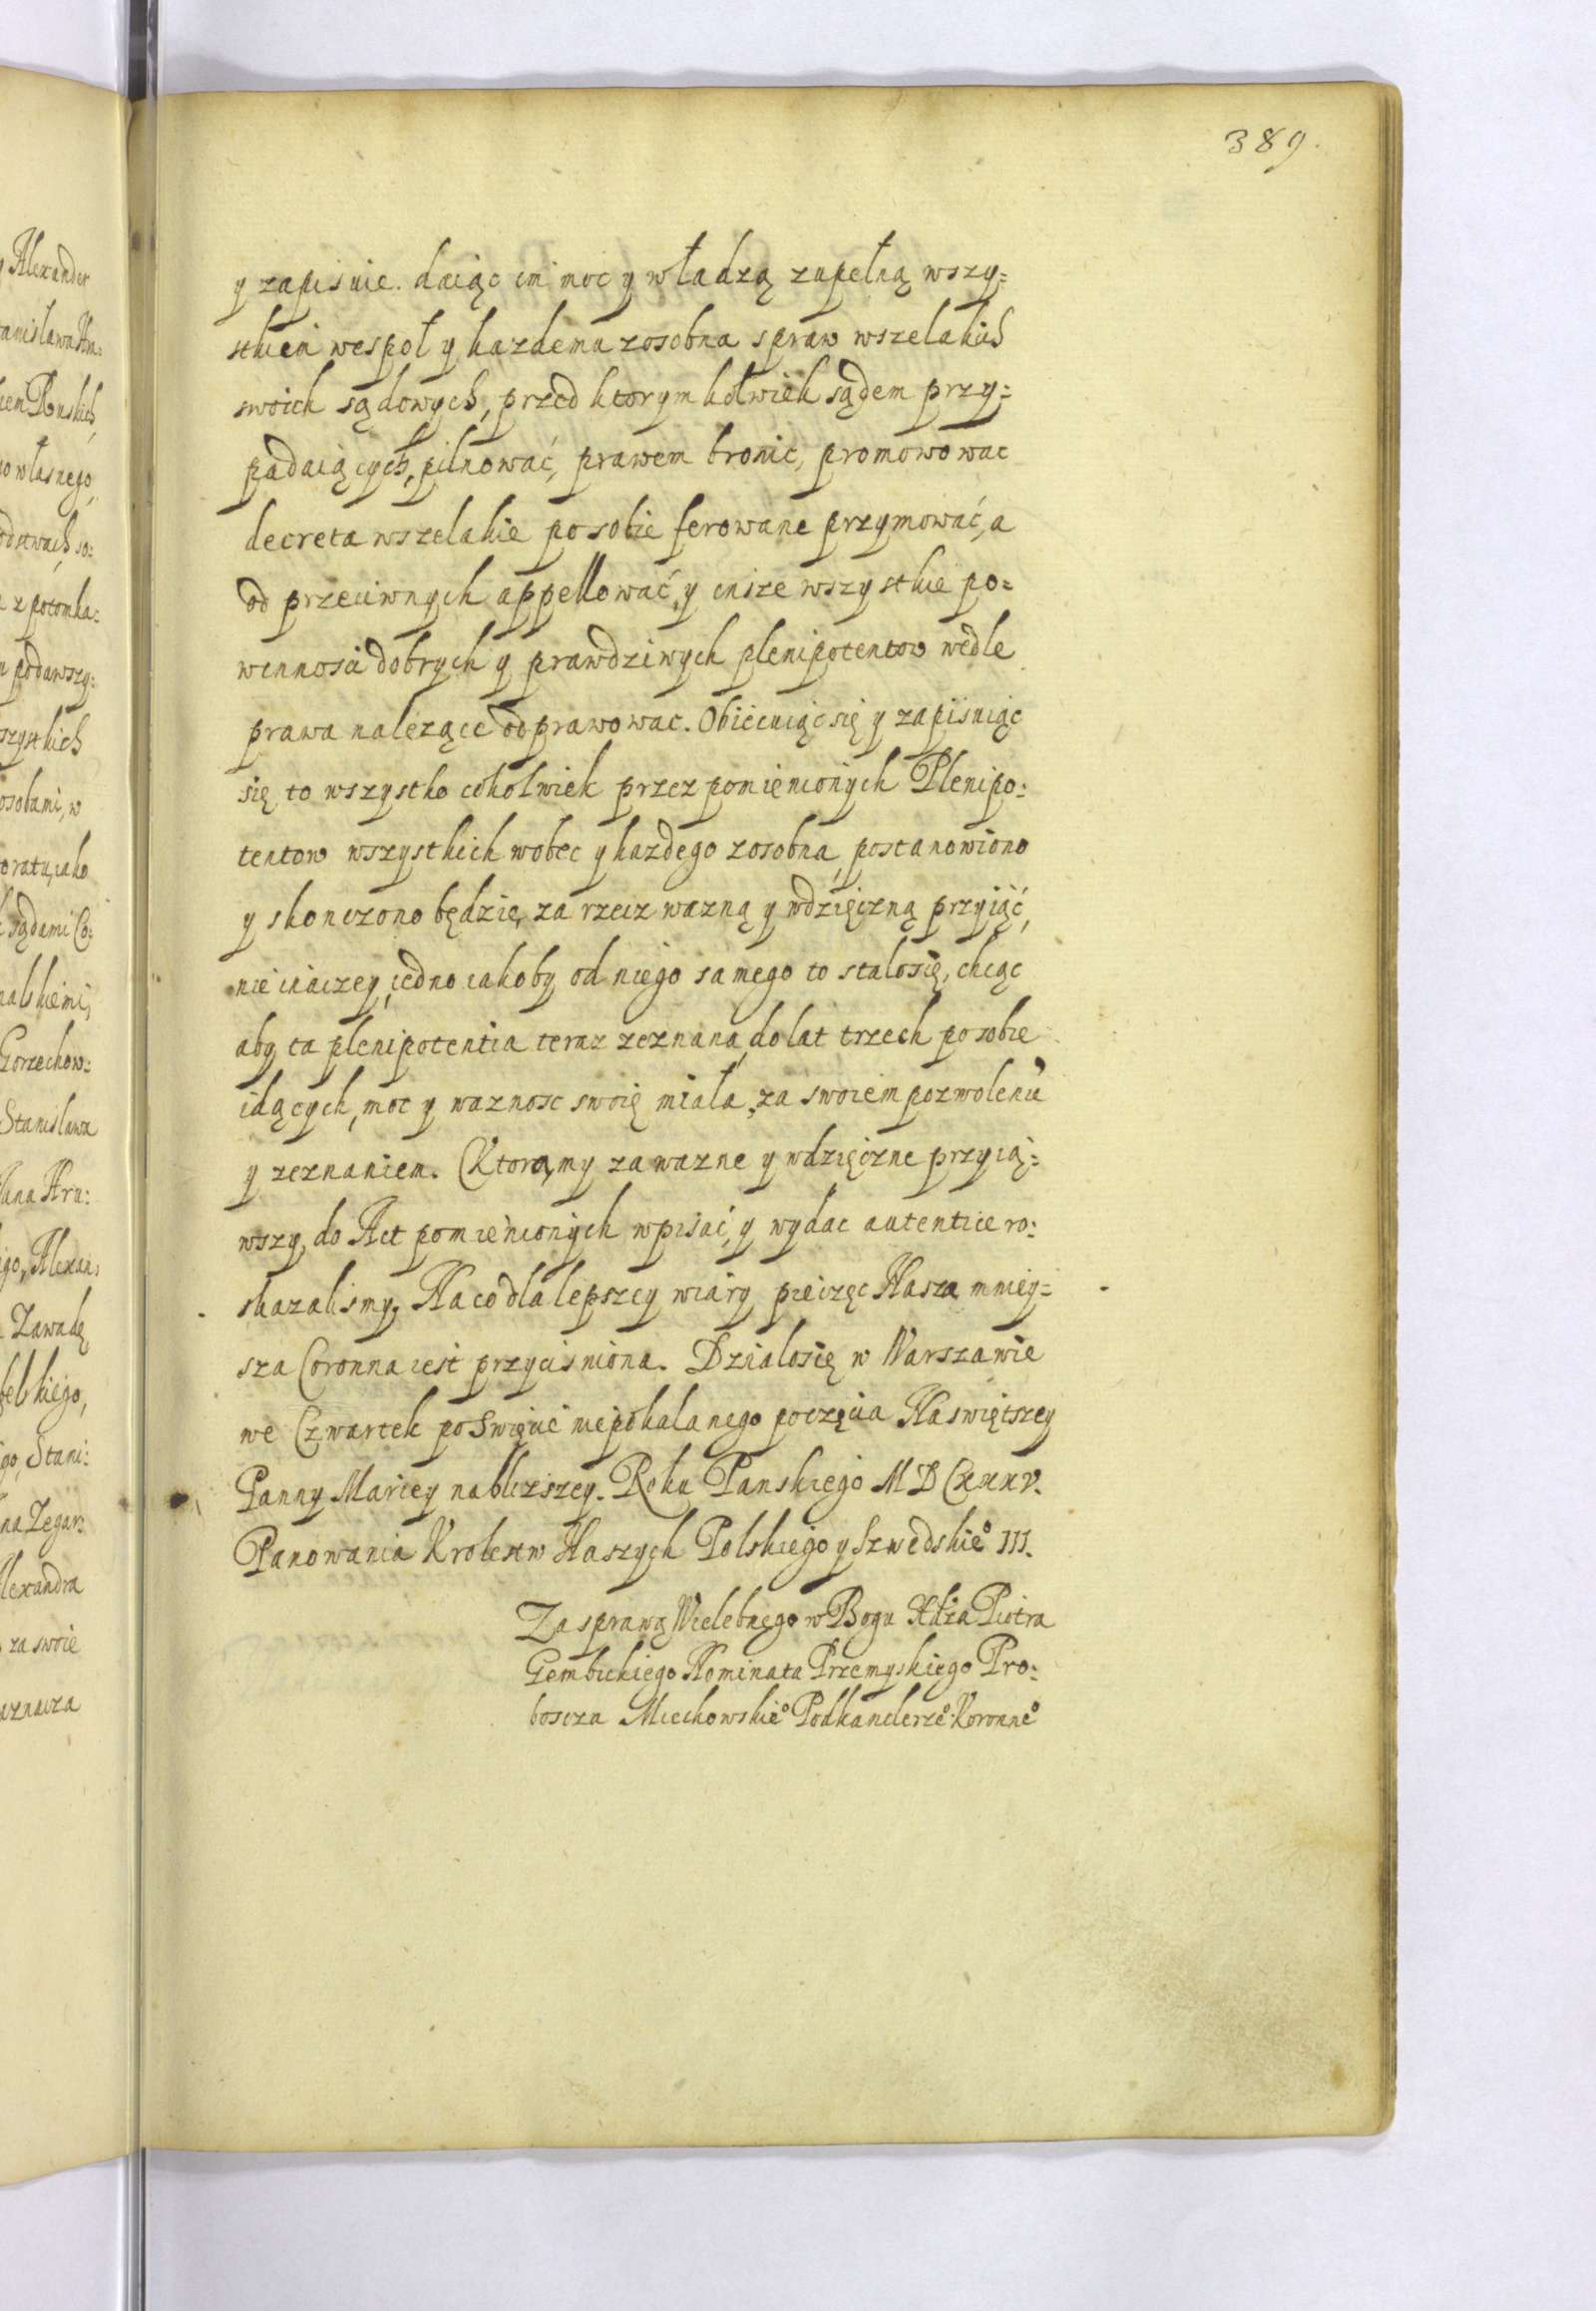 389.
y zapisuie. daiąc im moc y władzą zupełną wszy=
stkim wespoł y kazdemu zosobna spraw wszelakich
swoich sądowych, przed ktorymkolwiek sądem przy=
padaiących, pilnować, prawem bronic, promowowac
decreta wszelakie po sobie ferowane przymować, a
od przeciwnych appellować, y insze wszystkie po=
winnosci dobrych y prawdziwych plenipotentow wedle
prawa nalezące odprawowac. Obiecuiąc się y zapisuiąc
się to wszystko cokolwiek przez pomięnionych Plenipo=
tentow wszystkich wobec y kazdego zosobna, postanowiono
y skonczono będzie, za rzecz wazną y wdzięczną przyiąć,
nie inaczey, iedno iakoby od niego samego to stalosię, chcąc
aby ta plenipotentia teraz zeznana, do lat trzech po sobie
idących, moc y waznosc swoię miała, za swoiem pozwoleniē
y zeznaniem. Ktorą my za wazne y wdzięczne przyią=
wszy, do Act pomienionych wpisać, y wydac autentice ro=
skazalismy. Na co dla lepszey wiary pieczęc Nasza mniey=
sza Coronna iest przycisniona. Dzialosię w Warszawie
we Czwartek po Swięcie niepokalanego poczęcia Naswiętszey
Panny Mariey nablizszey. Roku Panskiego MDCXXXV.
Panowania Krolestw Naszych Polskiego y Szwedskie° III.
Za sprawą Wielebnego w Bogu Xdza Piotra
Gembickiego Nominata Przemyskiego Pro=
boscza Miechowskie° Podkanclerze° Koronne°